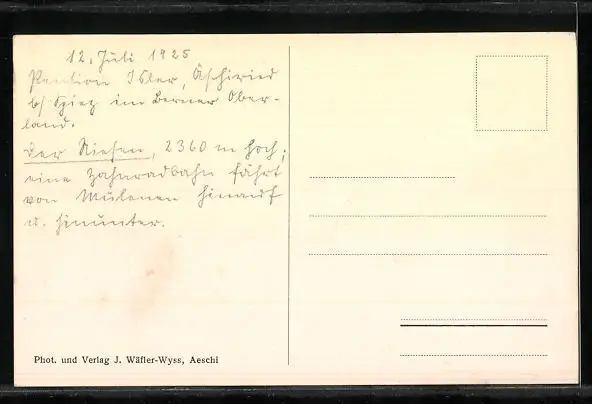 12. Juli 1925
Pension Isler, Äschiried
b/ Spiez im Berner Ober-
land.
Der Niesen, 2360 m hoch;
eine Zahnradbahn fährt
von Mülenen hinauf
u. hinunter.
Phot. und Verlag J. Wäfler-Wyss, Aeschi